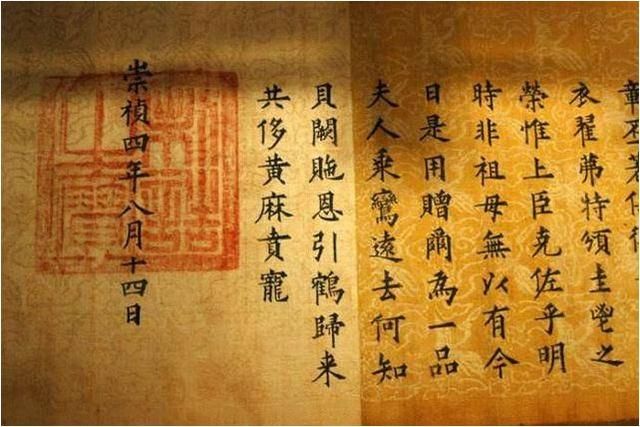 衣翟茀特頒圭鬯之
榮惟上臣克佐乎明
時非祖母無以有今
日是用贈爾為一品
夫人乘鸞遠去何知
貝闕貤恩引鶴歸来
共侈黃麻賁寵
崇禎四年八月十四日
制誥之寶